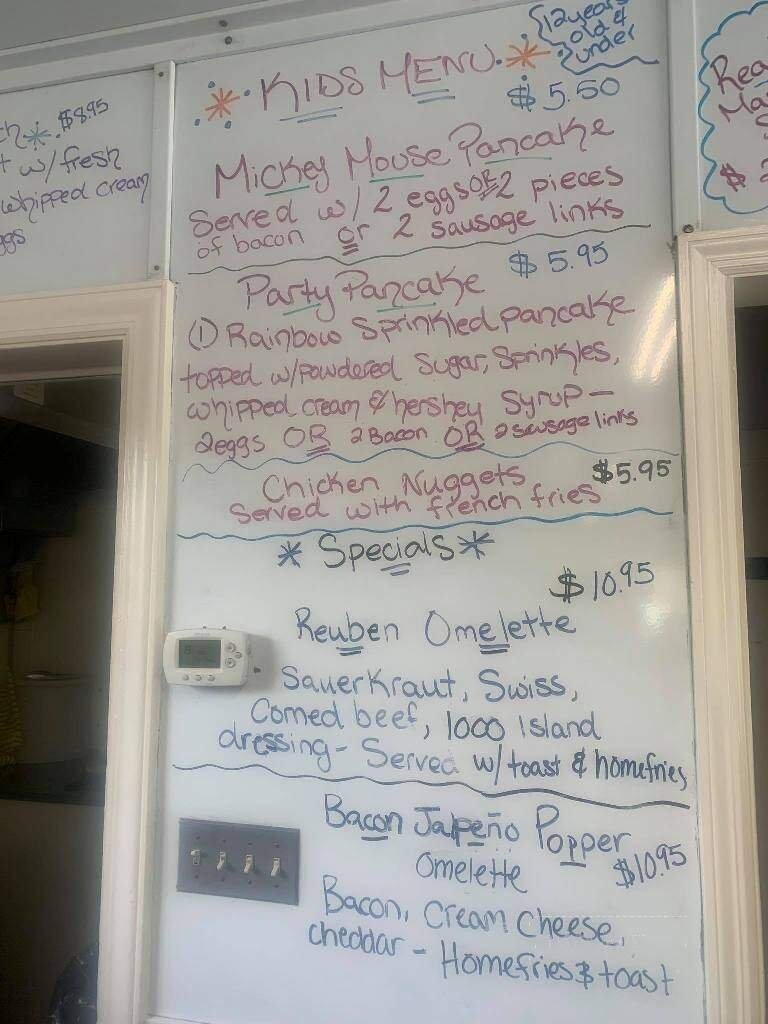 * KIDS MENU *
12 years
old &
under
$5.50
Mickey Mouse Pancake
Served w/ 2 eggs OR 2 pieces
of bacon or 2 sausage links
$5.95
Party Pancake
① Rainbow Sprinkled pancake
topped w/powdered Sugar, Sprinkles,
whipped cream & hershey Syrup –
2eggs OR 2 Bacon OR 2 sausage links
Chicken Nuggets $5.95
Served with french fries
* Specials *
$10.95
Reuben Omelette
Sauerkraut, Swiss,
Corned beef, 1000 Island
dressing – Served w/ toast & homefries
Bacon Jalpeño Popper
Omelette $10.95
Bacon, Cream Cheese,
cheddar – Homefries & toast
* $8.95
w/ fresh
whipped cream
$